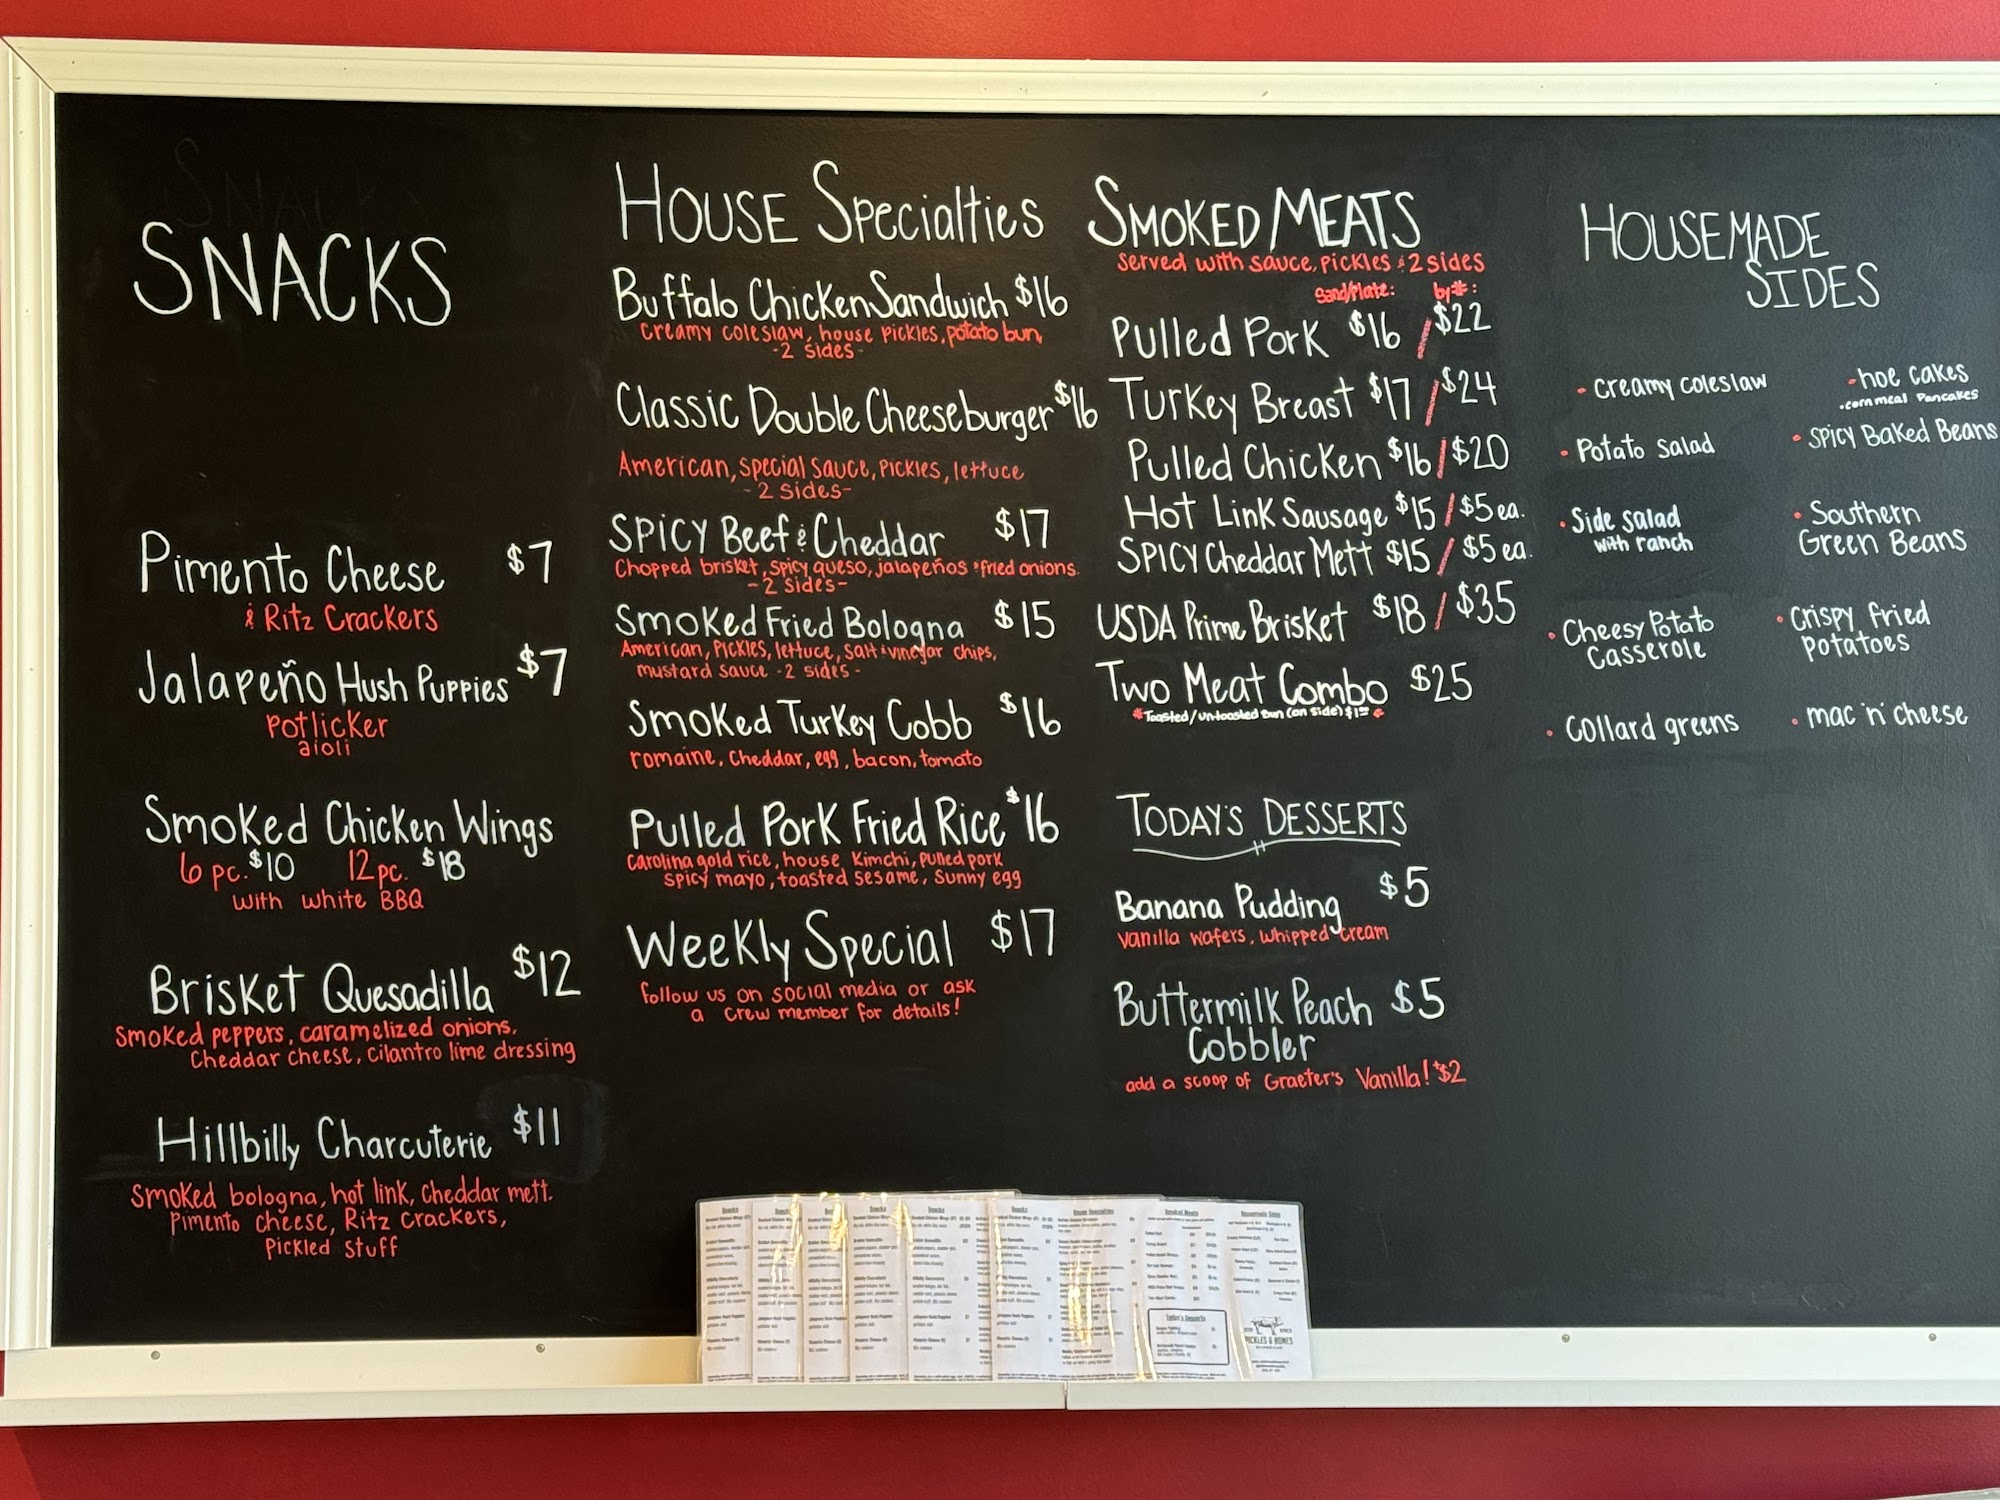 SNACKS
Pimento Cheese $7
& Ritz Crackers
Jalapeño Hush Puppies $7
Potlicker
aioli
Smoked Chicken Wings
6 pc. $10 12 pc. $18
with white BBQ
Brisket Quesadilla $12
Smoked peppers, caramelized onions,
Cheddar cheese, cilantro lime dressing
Hillbilly Charcuterie $11
Smoked bologna, hot link, Cheddar mett.
Pimento cheese, Ritz Crackers,
Pickled stuff
HOUSE Specialties
Buffalo Chicken Sandwich $16
Creamy coleslaw, house pickles, potato bun,
-2 sides-
Classic Double Cheeseburger $16
American, special sauce, pickles, lettuce
-2 sides-
Spicy Beef & Cheddar $17
Chopped brisket, spicy queso, jalapeños & fried onions.
-2 sides-
Smoked Fried Bologna $15
American, Pickles, lettuce, salt & vinegar chips,
mustard sauce -2 sides-
Smoked Turkey Cobb $16
romaine, cheddar, egg, bacon, tomato
Pulled Pork Fried Rice $16
Carolina gold rice, house Kimchi, pulled pork
spicy mayo, toasted sesame, sunny egg
Weekly Special $17
follow us on social media or ask
a crew member for details!
SMOKED MEATS
served with sauce, pickles & 2 sides
Sand/Plate: by #:
Pulled Pork $16 / $22
Turkey Breast $17 / $24
Pulled Chicken $16 / $20
Hot Link Sausage $15 / $5 ea.
Spicy Cheddar Mett $15 / $5 ea.
USDA Prime Brisket $18 / $35
Two Meat Combo $25
*Toasted/Untoasted Bun (on side) $1.00*
TODAY'S DESSERTS
Banana Pudding $5
Vanilla wafers, whipped cream
Buttermilk Peach $5
Cobbler
add a scoop of Graeter's Vanilla! +$2
HOUSEMADE
SIDES
• creamy coleslaw
• Potato salad
• Side salad
with ranch
• Cheesy Potato
Casserole
• Collard greens
• hoe cakes
• corn meal Pancakes
• Spicy Baked Beans
• Southern
Green Beans
• Crispy fried
potatoes
• mac 'n' cheese
Snacks
House Specialties
Smoked Meats
Housemade Sides
Today's Desserts
PICKLES & BONES